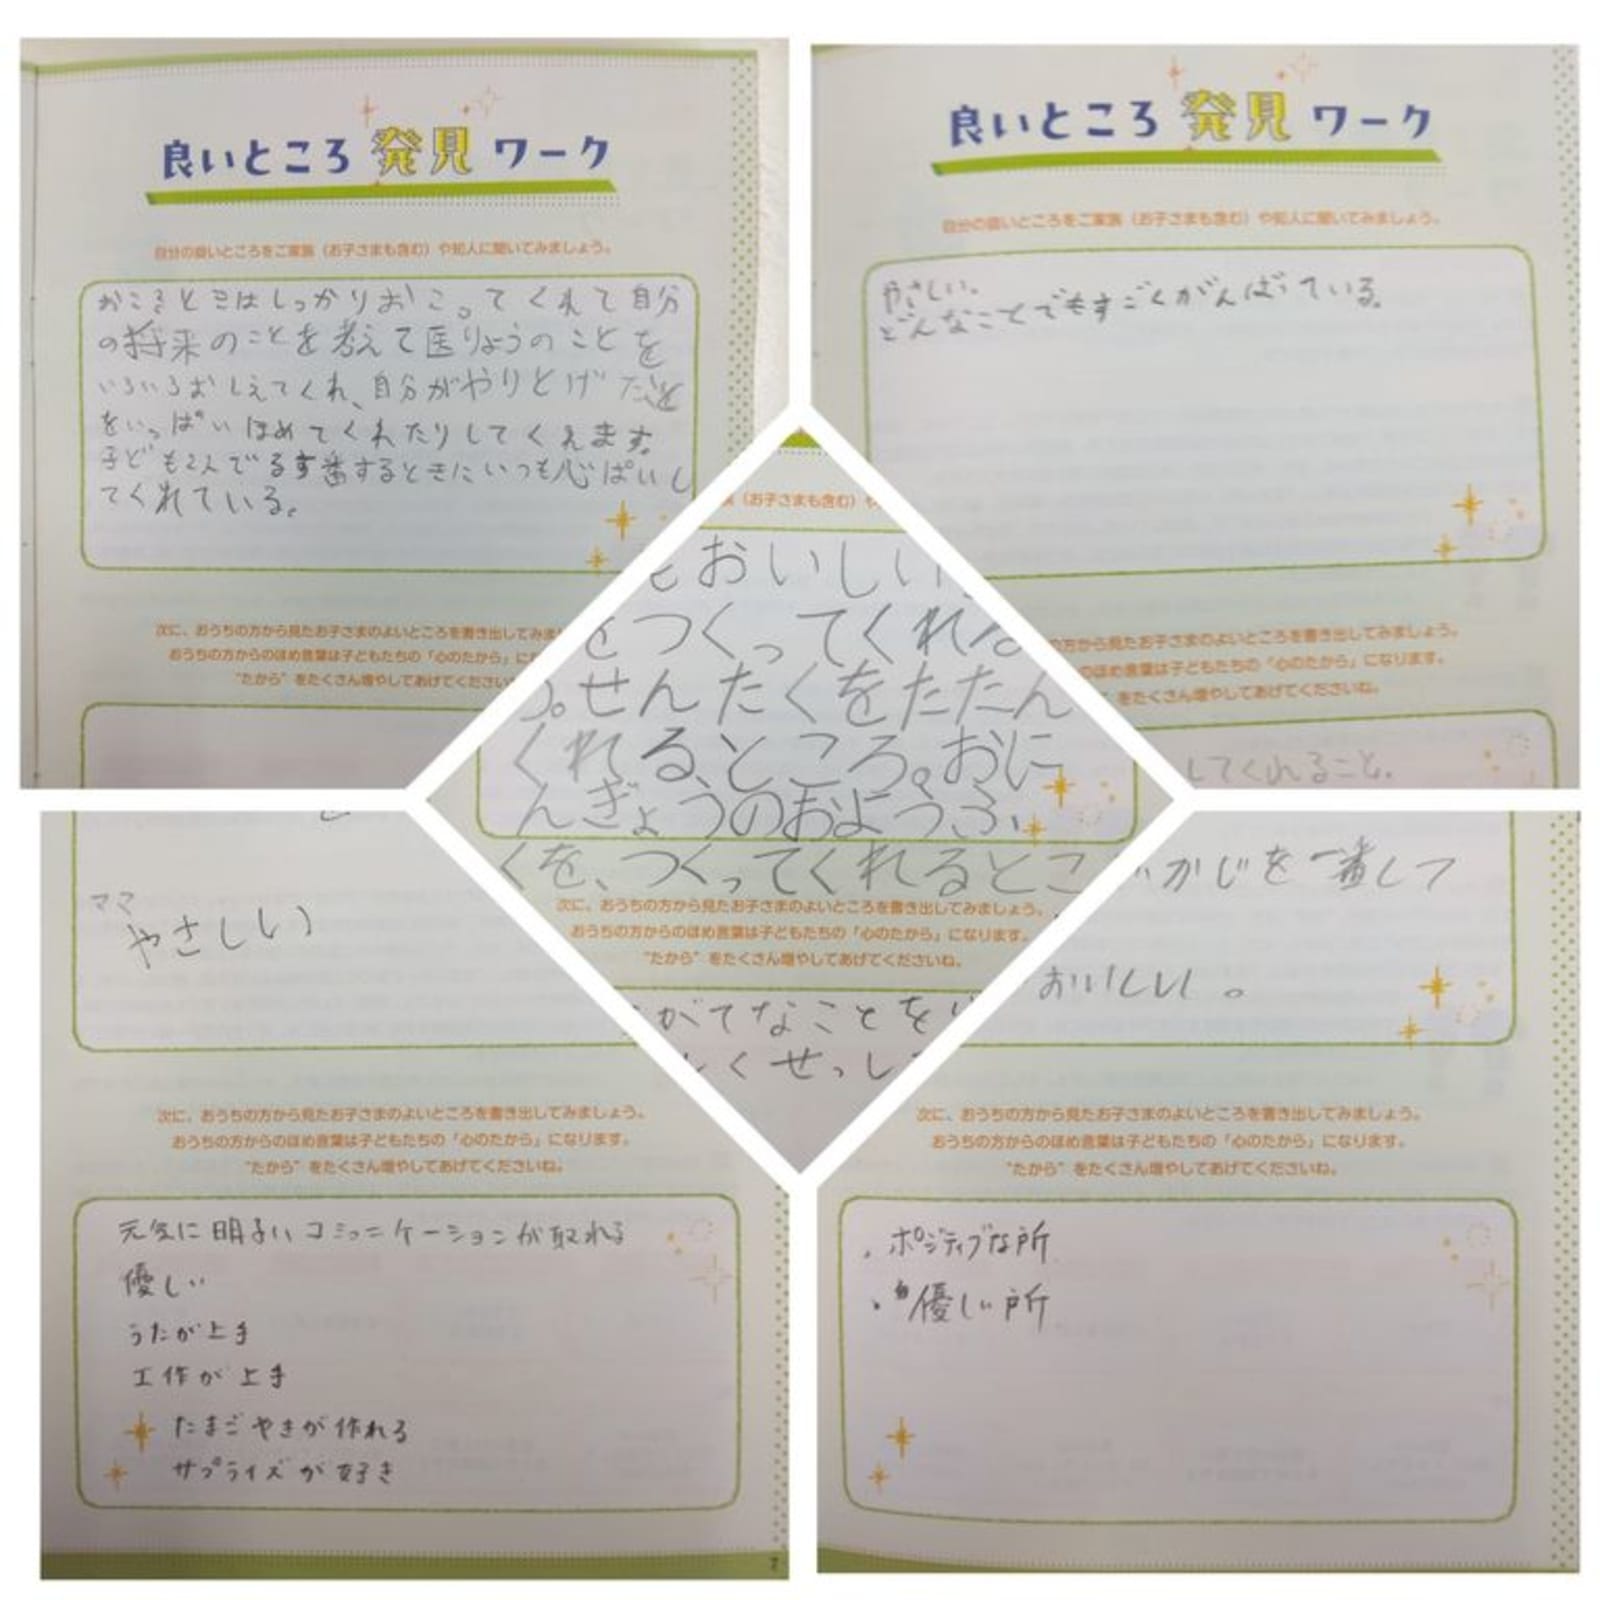 良いところ発見ワーク
自分の良いところをご家族（お子さまも含む）や知人に聞いてみましょう。
おこるときはしっかりおこってくれて自分
の将来のことを考えて医りょうのことを
いろいろおしえてくれ、自分がやりとげたこと
をいっぱいほめてくれたりしてくれます。
子ども2人でるす番するときにいつも心ぱいし
てくれている。
次に、おうちの方から見たお子さまのよいところを書き出してみま
おうちの方からのほめ言葉は子どもたちの「心のたから」に
“たから”をたくさん増やしてあげてください
良いところ発見ワーク
自分の良いところをご家族（お子さまも含む）や知人に聞いてみましょう。
やさしい。
どんなことでもすごくがんばっている。
の方から見たお子さまのよいところを書き出してみましょう。
のほめ言葉は子どもたちの「心のたから」になります。
をたくさん増やしてあげてくださいね。
してくれること。
（お子さまも含む）や
もおいしい
をつくってくれる
。せんたくをたたん
くれる、ところ。おに
んぎょうのおようふ
くを、つくってくれるとこ
次に、おうちの方から見たお子さまのよいところを書き出してみましょう。
おうちの方からのほめ言葉は子どもたちの「心のたから」になります。
“たから”をたくさん増やしてあげてくださいね。
がてなことを
くせっし
ママ
やさしい
次に、おうちの方から見たお子さまのよいところを書き出してみましょう。
おうちの方からのほめ言葉は子どもたちの「心のたから」になります。
“たから”をたくさん増やしてあげてくださいね。
元気に明るいコミュニケーションが取れる
優しい
うたが上手
工作が上手
たまごやきが作れる
サプライズが好き
7
かじを一番して
おいしい。
次に、おうちの方から見たお子さまのよいところを書き出してみましょう。
おうちの方からのほめ言葉は子どもたちの「心のたから」になります。
“たから”をたくさん増やしてあげてくださいね。
・ポジティブな所
・優しい所